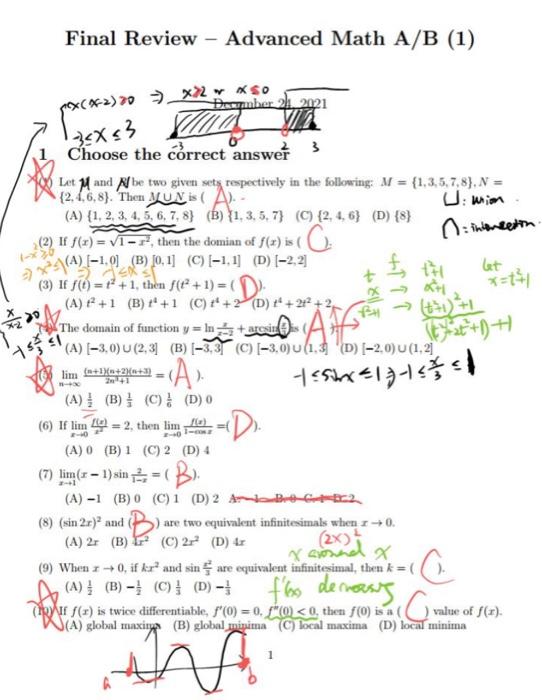 Final Review – Advanced Math A/B (1)
x(x-2)≥0 ⇒ x≥2 or x≤0
December 24, 2021
-3≤x≤3
-3 0 2 3
1 Choose the correct answer
(1) Let M and N be two given sets respectively in the following: M = {1, 3, 5, 7, 8}, N =
{2, 4, 6, 8}. Then M∪N is ( A ).
∪: union
(A) {1, 2, 3, 4, 5, 6, 7, 8} (B) {1, 3, 5, 7} (C) {2, 4, 6} (D) {8}
∩= intersection
(2) If f(x) = √1 − x², then the domian of f(x) is ( C ).
1-x²≥0
(A) [−1, 0] (B) [0, 1] (C) [−1, 1] (D) [−2, 2]
⇒ x²≤1 ⇒ -1≤x≤1
(3) If f(t) = t² + 1, then f(t² + 1) = ( D ).
(A) t² + 1 (B) t⁴ + 1 (C) t⁴ + 2 (D) t⁴ + 2t² + 2
f
t → t²+1
x → x²+1
t²+1 → (t²+1)²+1
(t⁴+2t²+1)+1
let
x=t²+1
x/(x-2) ≥0
-1≤x/3≤1
(4) The domain of function y = ln x/(x−2) + arcsin x/3 is ( A ).
(A) [−3, 0) ∪ (2, 3] (B) [−3, 3] (C) [−3, 0) ∪ (1, 3] (D) [−2, 0) ∪ (1, 2]
-1≤sinx≤1 ⇒ -1≤x/3≤1
(5) lim n→∞ (n+1)(n+2)(n+3)/(2n³+1) = ( A ).
(A) 1/2 (B) 1/3 (C) 1/6 (D) 0
(6) If lim x→0 f(x)/x² = 2, then lim x→0 f(x)/(1−cos x) =( D ).
(A) 0 (B) 1 (C) 2 (D) 4
(7) lim x→1 (x − 1) sin 2/(1−x) = ( B ).
(A) −1 (B) 0 (C) 1 (D) 2 A. −1 B. 0 C. 1 D. 2
(8) (sin 2x)² and ( B ) are two equivalent infinitesimals when x → 0.
(A) 2x (B) 4x² (C) 2x² (D) 4x
(2x)²
x around x
(9) When x → 0, if kx² and sin x²/3 are equivalent infinitesimal, then k = ( C ).
(A) 1/2 (B) −1/2 (C) 1/3 (D) −1/3
f'(x) decreases
(10) If f(x) is twice differentiable, f′(0) = 0, f″(0) < 0, then f(0) is a ( C ) value of f(x).
(A) global maxima (B) global minima (C) local maxima (D) local minima
a b
1